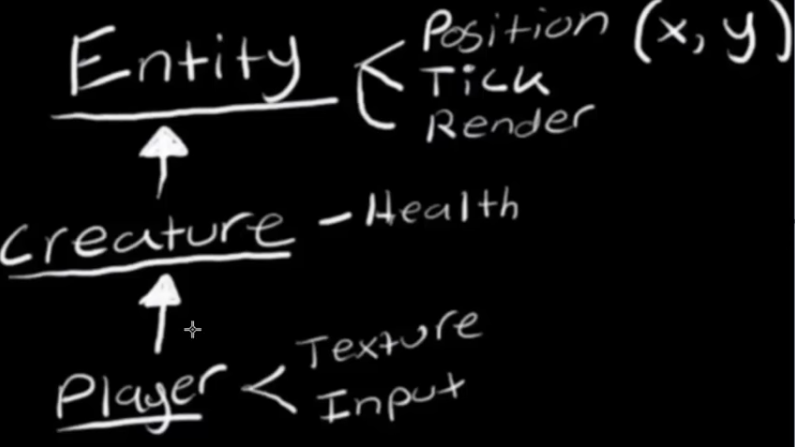 Entity
Position (x, y)
Tick
Render
Creature - Health
Player
Texture
Input